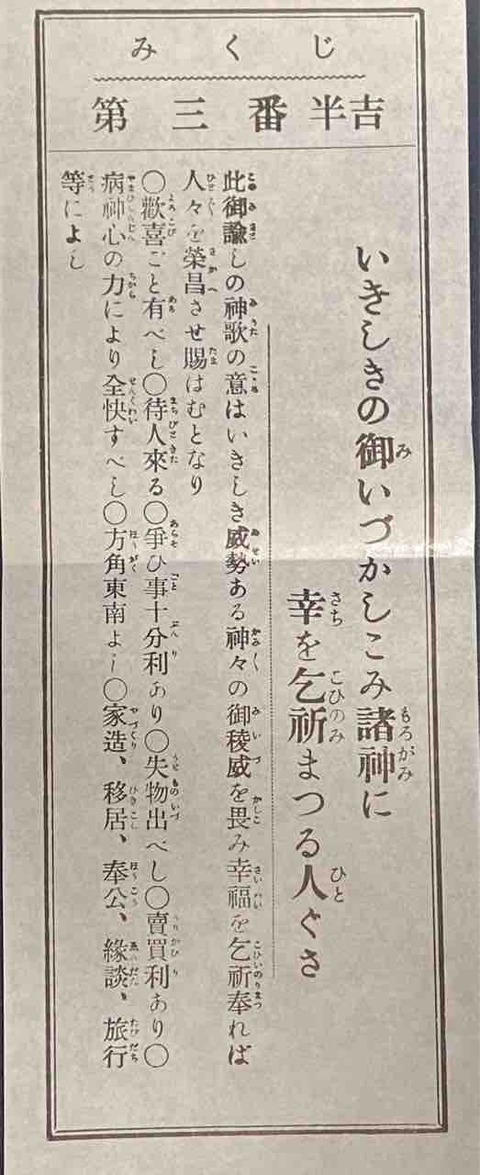 みくじ
第三番 半吉
いきしきの御いづかしこみ諸神に
幸を乞祈まつる人ぐさ
此御諭しの神歌の意はいきしき威勢ある神々の御稜威を畏み幸福を乞祈奉れば
人々を榮昌させ賜はむとなり
〇歡喜ごと有べし〇待人來る〇爭ひ事十分利あり〇失物出べし〇賣買利あり〇
病神心の力により全快すべし〇方角東南よし〇家造、移居、奉公、緣談、旅行
等によし